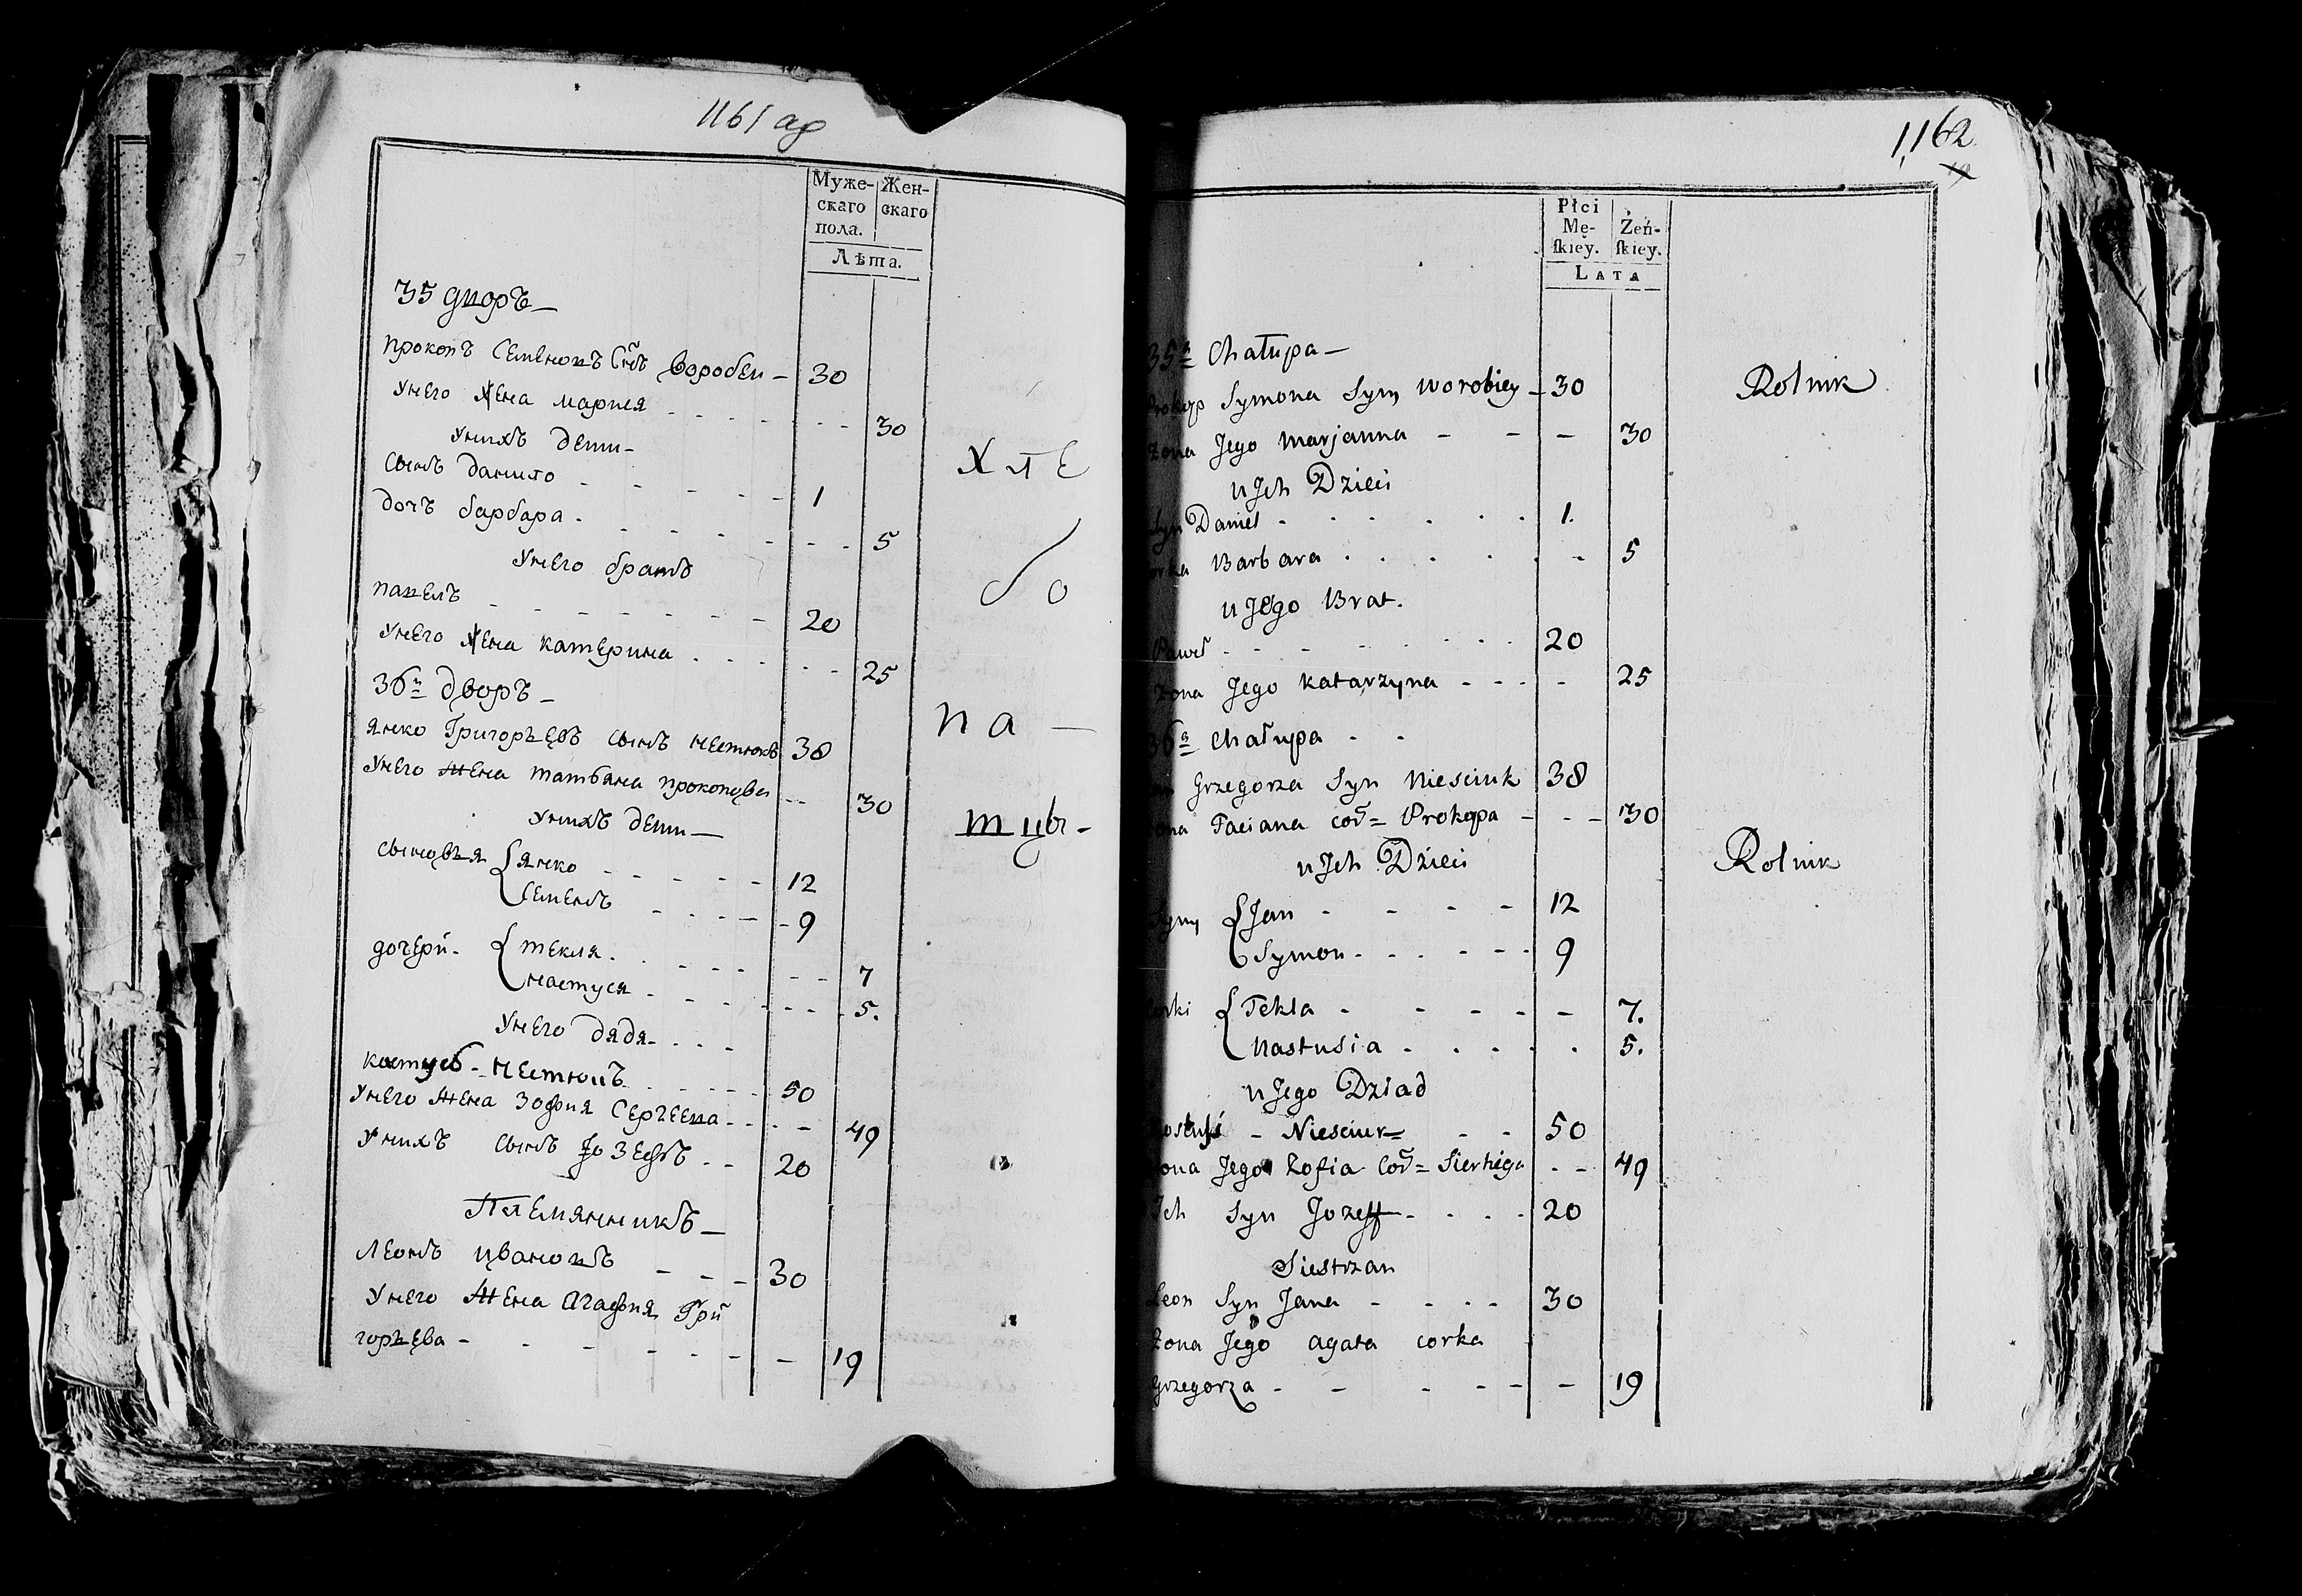 1161 ад
Муже-
скаго
пола.
Жен-
скаго
Лѣта.
35 дворъ
прокопъ Семеновъ Снъ Воробеи 30
Унего жена марися 30
Унихъ дети
Сынъ данило 1
дочъ барбара 5
Унего братъ
павелъ 20
Унего жена катерина 25
36й дворъ
янко Григорьевъ сынъ нестюкъ 38
Унего жена татьяна прокопова 30
Унихъ дети
сыновья { янко 12
семенъ 9
дочери { текля 7
настуся 5.
Унего дядя
костусь нестюкъ 50
Унего жена зофия Сергеева 49
Унихъ сынъ Іозефъ 20
Племянникъ
леонъ ивановъ 30
Унего жена агафия Гри
горьева 19
Хле
бо
па-
тцы-
1,162.
Płci
Mę-
ſkiey.
Żeń-
ſkiey.
LATA
35a Chałupa
Prokop Symona Syn Worobiey 30
Żona Jego Marjanna 30
u Jch Dzieci
Syn Daniel 1.
Corka Barbara 5
u Jego Brat.
Paweł 20
Żona Jego Katarzyna 25
36a Chałupa
Grzegorza Syn Niesciuk 38
Żona Taciana cor= Prokopa 30
u Jch Dzieci
Syny { Jan 12
Symon 9
Corki { Tekla 7.
Nastusia 5.
u Jego Dziad
Kostuś Niesciuk 50
Żona Jego Zofia Cor= Sierhieja 49
Jch Syn Jozeff 20
Siestrzan
Leon Syn Jana 30
Żona Jego agata corka
Grzegorza 19
Rolnik
Rolnik